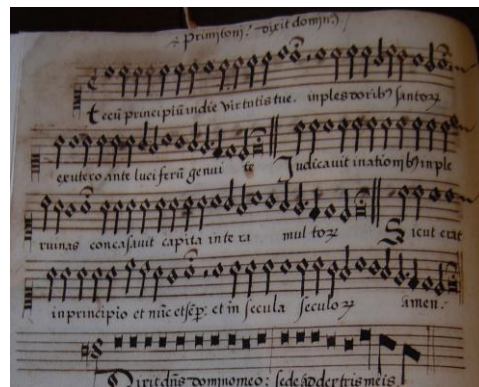 Primi toni. Dixit domin9
Tecū principiū in die virtutis tue. inplesdoribꝰ santoꝝ
exutero ante luciferū genui te Judicavit inationibꝰ inple
ruinas concasavit capita inte ra multoꝝ Sicut erat
inprincipio et nūc etsēp: et in secula seculoꝝ amen.
Dixit dn̄s domino meo: sede ad dextris meis